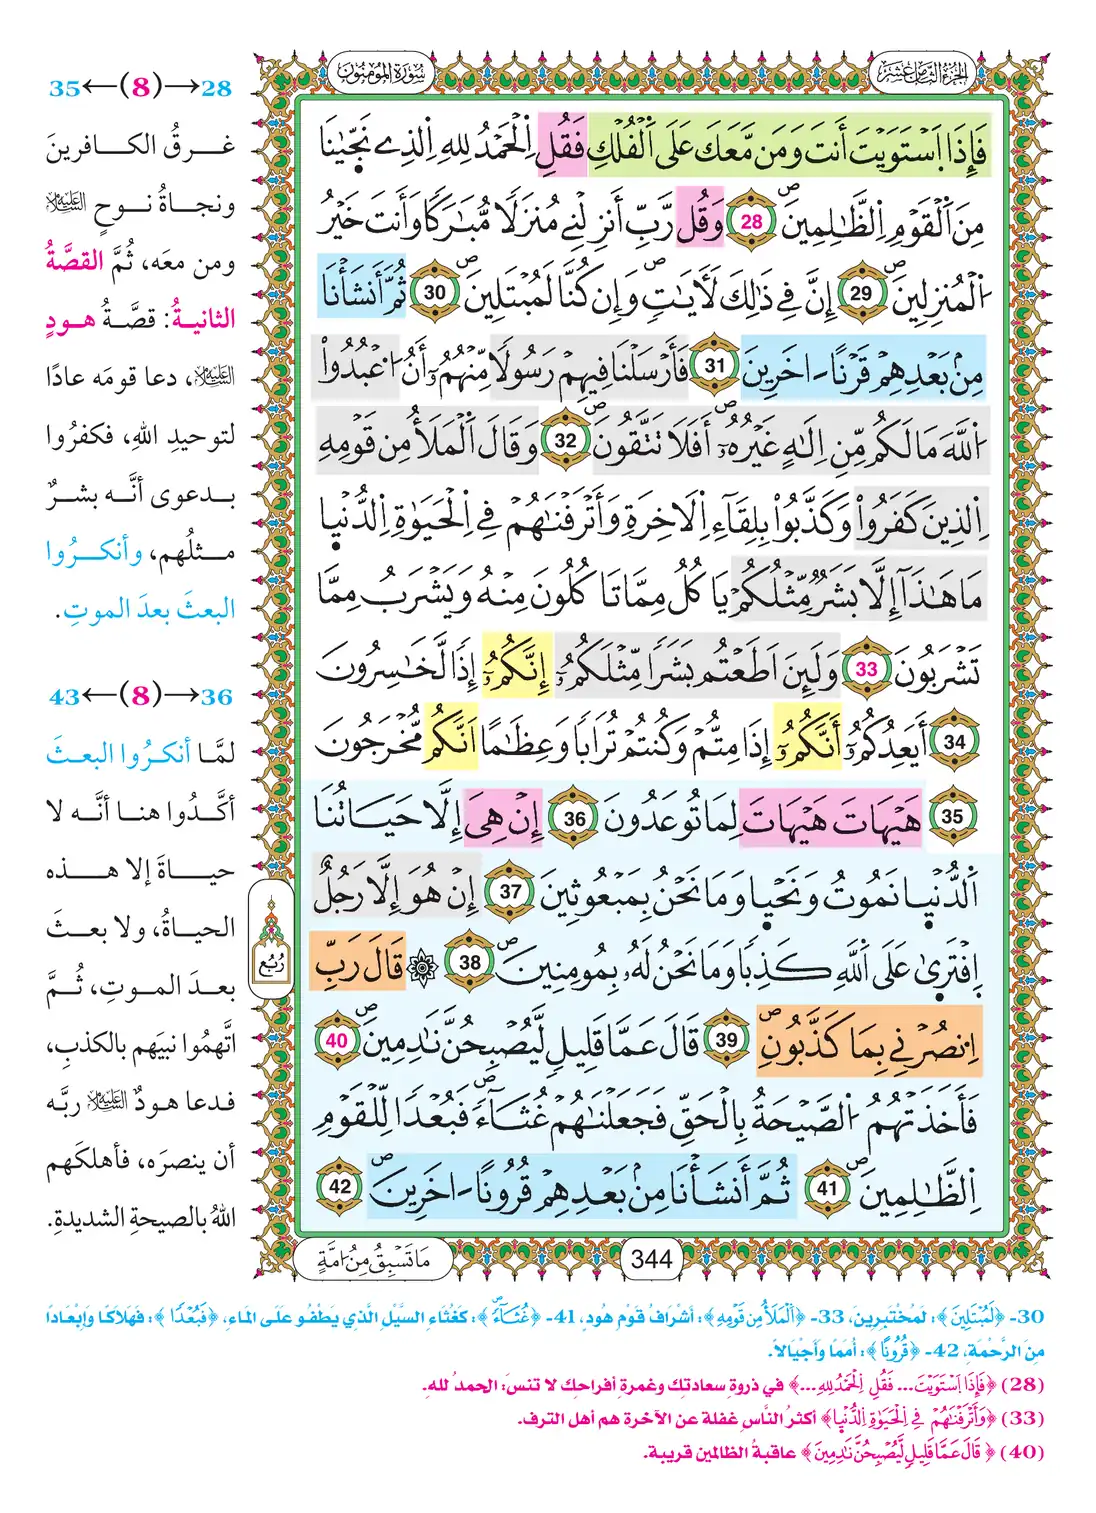 الجزء الثامن عشر
سورة المومنون
فَإِذَا اَسْتَوَيْتَ أَنتَ وَمَن مَّعَكَ عَلَى اَلْفُلْكِ فَقُلِ اِلْحَمْدُ لِلهِ اِلذِے نَجَّيٰنَا
مِنَ اَلْقَوْمِ اِلظَّٰلِمِينَۖ 28 وَقُل رَّبِّ أَنزِلْنِے مُنزَلًا مُّبَٰرَكًا وَأَنتَ خَيْرُ
اُلْمُنزِلِينَۖ 29 إِنَّ فِے ذَٰلِكَ لَأٓيَٰتٖۖ وَإِن كُنَّا لَمُبْتَلِينَۖ 30 ثُمَّ أَنشَأْنَا
مِنۢ بَعْدِهِمْ قَرْنًا اٰخَرِينَ 31 فَأَرْسَلْنَا فِيهِمْ رَسُولًا مِّنْهُمُۥٓ أَنُ اُعْبُدُواْ
اُللَّهَ مَا لَكُم مِّنِ اِلَٰهٍ غَيْرُهُۥٓۖ أَفَلَا تَتَّقُونَۖ 32 وَقَالَ اَلْمَلَأُ مِن قَوْمِهِ
اِلذِينَ كَفَرُواْ وَكَذَّبُواْ بِلِقَآءِ اِلَاخِرَةِ وَأَتْرَفْنَٰهُمْ فِے اِلْحَيَوٰةِ اِلدُّنْيَا
مَا هَٰذَآ إِلَّا بَشَرٌ مِّثْلُكُمْ يَاكُلُ مِمَّا تَاكُلُونَ مِنْهُ وَيَشْرَبُ مِمَّا
تَشْرَبُونَ 33 وَلَئِنَ اَطَعْتُم بَشَرًا مِّثْلَكُمُۥٓ إِنَّكُمُۥٓ إِذًا لَّخَٰسِرُونَ
34 أَيَعِدُكُمُۥٓ أَنَّكُمُۥٓ إِذَا مِتُّمْ وَكُنتُمْ تُرَابًا وَعِظَٰمًا اَنَّكُم مُّخْرَجُونَ
35 هَيْهَاتَ هَيْهَاتَ لِمَا تُوعَدُونَ 36 إِنْ هِيَ إِلَّا حَيَاتُنَا
اَلدُّنْيَا نَمُوتُ وَنَحْيَا وَمَا نَحْنُ بِمَبْعُوثِينَ 37 إِنْ هُوَ إِلَّا رَجُلٌ
اِفْتَرَىٰ عَلَى اَللَّهِ كَذِبًا وَمَا نَحْنُ لَهُۥ بِمُومِنِينَۖ 38 ۞ قَالَ رَبِّ
اِنصُرْنِے بِمَا كَذَّبُونِۖ 39 قَالَ عَمَّا قَلِيلٖ لَّيُصْبِحُنَّ نَٰدِمِينَۖ 40
فَأَخَذَتْهُمُ اُلصَّيْحَةُ بِالْحَقِّ فَجَعَلْنَٰهُمْ غُثَآءًۖ فَبُعْدًا لِّلْقَوْمِ
اِلظَّٰلِمِينَۖ 41 ثُمَّ أَنشَأْنَا مِنۢ بَعْدِهِمْ قُرُونًا اٰخَرِينَۖ 42
مَا تَسْبِقُ مِنُ امَّةٍ
344
رُبُع
35←(8)→28
غرقُ الكافرينَ
ونجاةُ نوحٍ عليه السلام
ومن معَه، ثُمَّ القصَّةُ
الثانيةُ: قصَّةُ هودٍ
عليه السلام، دعا قومَه عادًا
لتوحيدِ اللهِ، فكفرُوا
بدعوى أنَّه بشرٌ
مثلُهم، وأنكرُوا
البعثَ بعدَ الموتِ.
43←(8)→36
لمَّا أنكرُوا البعثَ
أكَّدُوا هنا أنَّه لا
حياةَ إلا هذه
الحياةُ، ولا بعثَ
بعدَ الموتِ، ثُمَّ
اتَّهمُوا نبيَهم بالكذبِ،
فدعا هودٌ عليه السلام ربَّه
أن ينصرَه، فأهلكَهم
اللهُ بالصيحةِ الشديدةِ.
30- ﴿لَمُبْتَلِينَ﴾: لَمُخْتَبِرِينَ، 33- ﴿اَلْمَلَأُ مِن قَوْمِهِ﴾: أَشْرَافُ قَوْمِ هُودٍ، 41- ﴿غُثَآءً﴾: كَغُثَاءِ السَّيْلِ الَّذِي يَطْفُو عَلَى المَاءِ، ﴿فَبُعْدًا﴾: فَهَلَاكًا وَإِبْعَادًا
مِنَ الرَّحْمَةِ، 42- ﴿قُرُونًا﴾: أُمَمًا وَأَجْيَالاً.
(28) ﴿فَإِذَا اَسْتَوَيْتَ... فَقُلِ اِلْحَمْدُ لِلهِ...﴾ في ذروة سعادتك وغمرة أفراحك لا تنسَ: الحمدُ لله.
(33) ﴿وَأَتْرَفْنَٰهُمْ فِے اِلْحَيَوٰةِ اِلدُّنْيَا﴾ أكثرُ النَّاسِ غفلة عن الآخرة هم أهل الترف.
(40) ﴿قَالَ عَمَّا قَلِيلٖ لَّيُصْبِحُنَّ نَٰدِمِينَ﴾ عاقبةُ الظالمين قريبة.